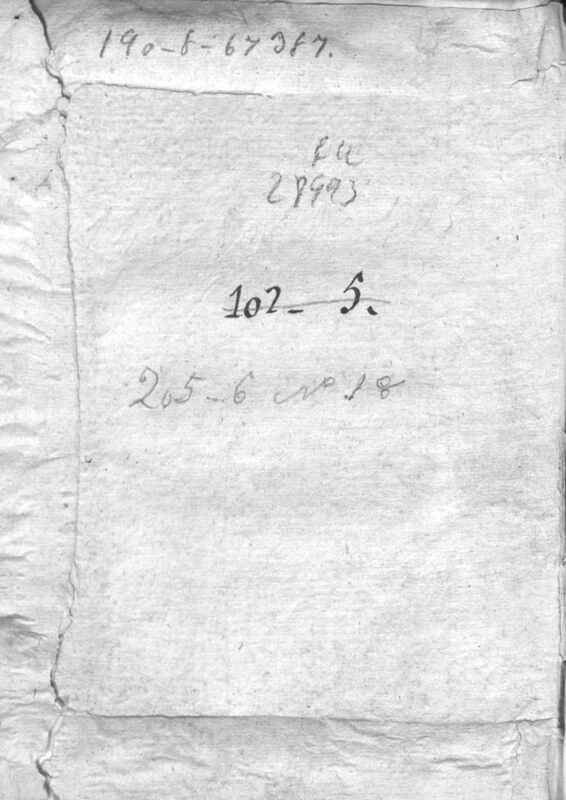 190-8-67387.
28993
102- 5.
205-6 Nº 18